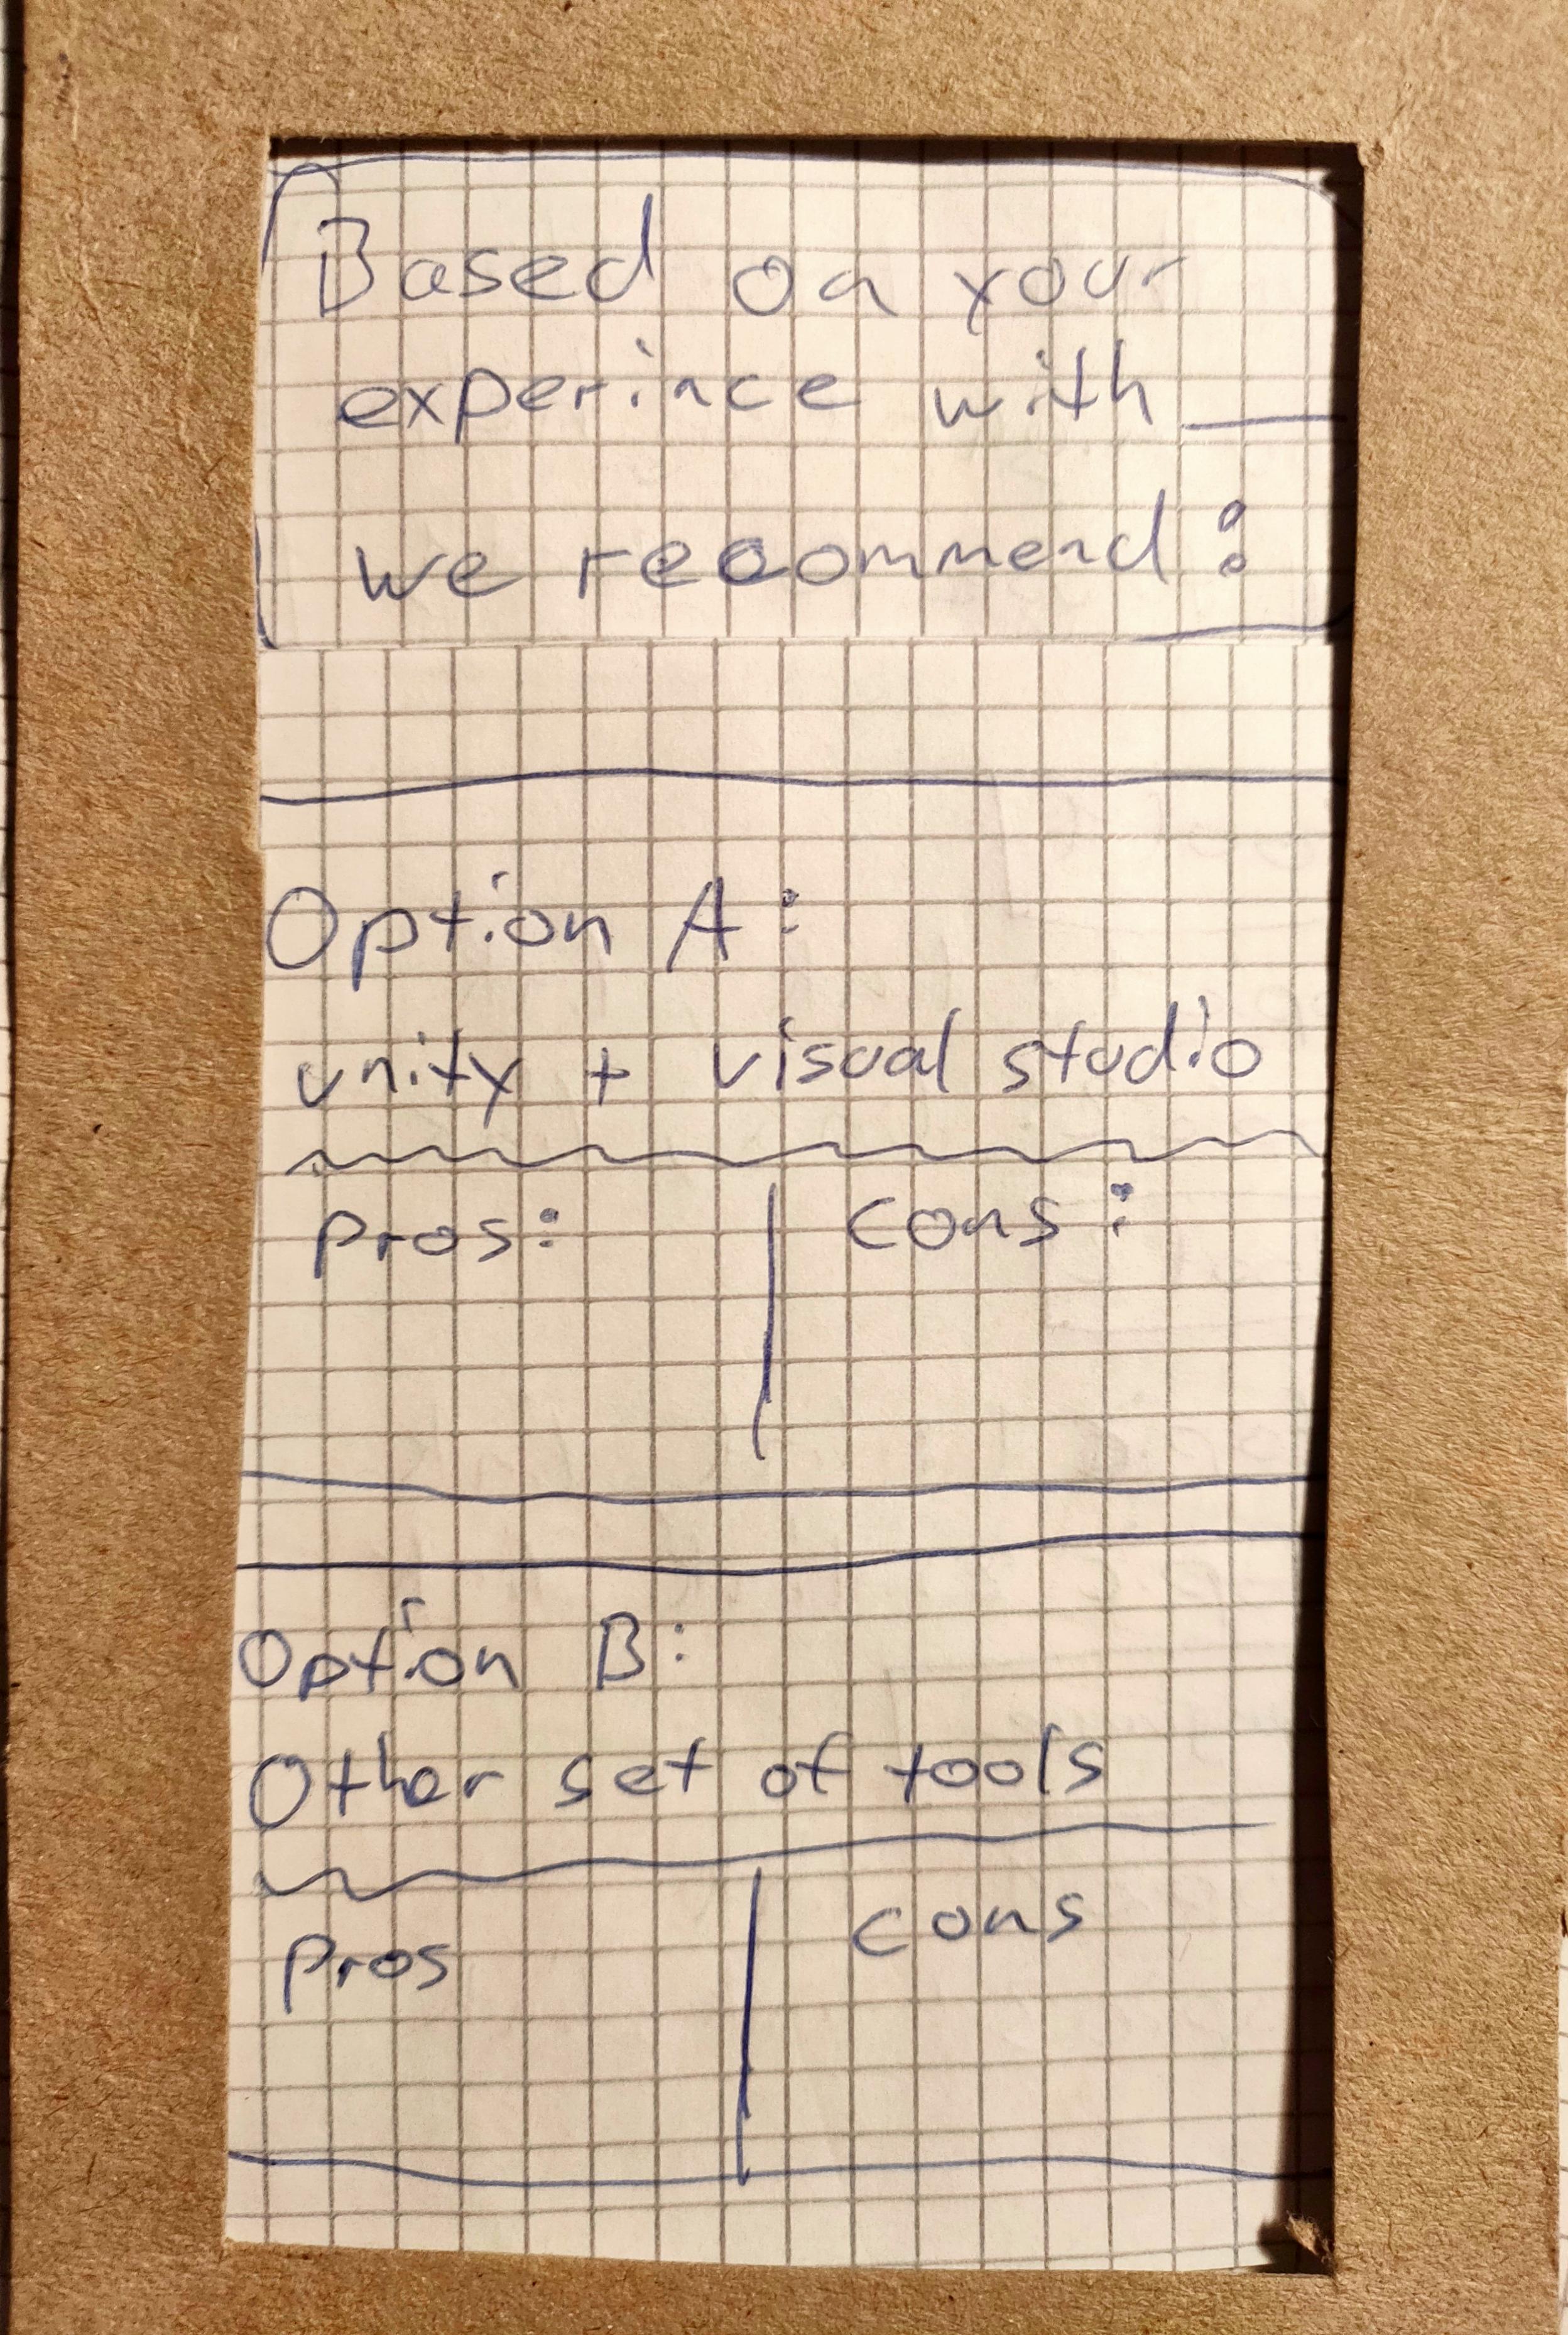 Based on your
experince with ___
we recommend:
Option A:
unity + visual studio
pros: cons:
Option B:
Other set of tools
Pros cons